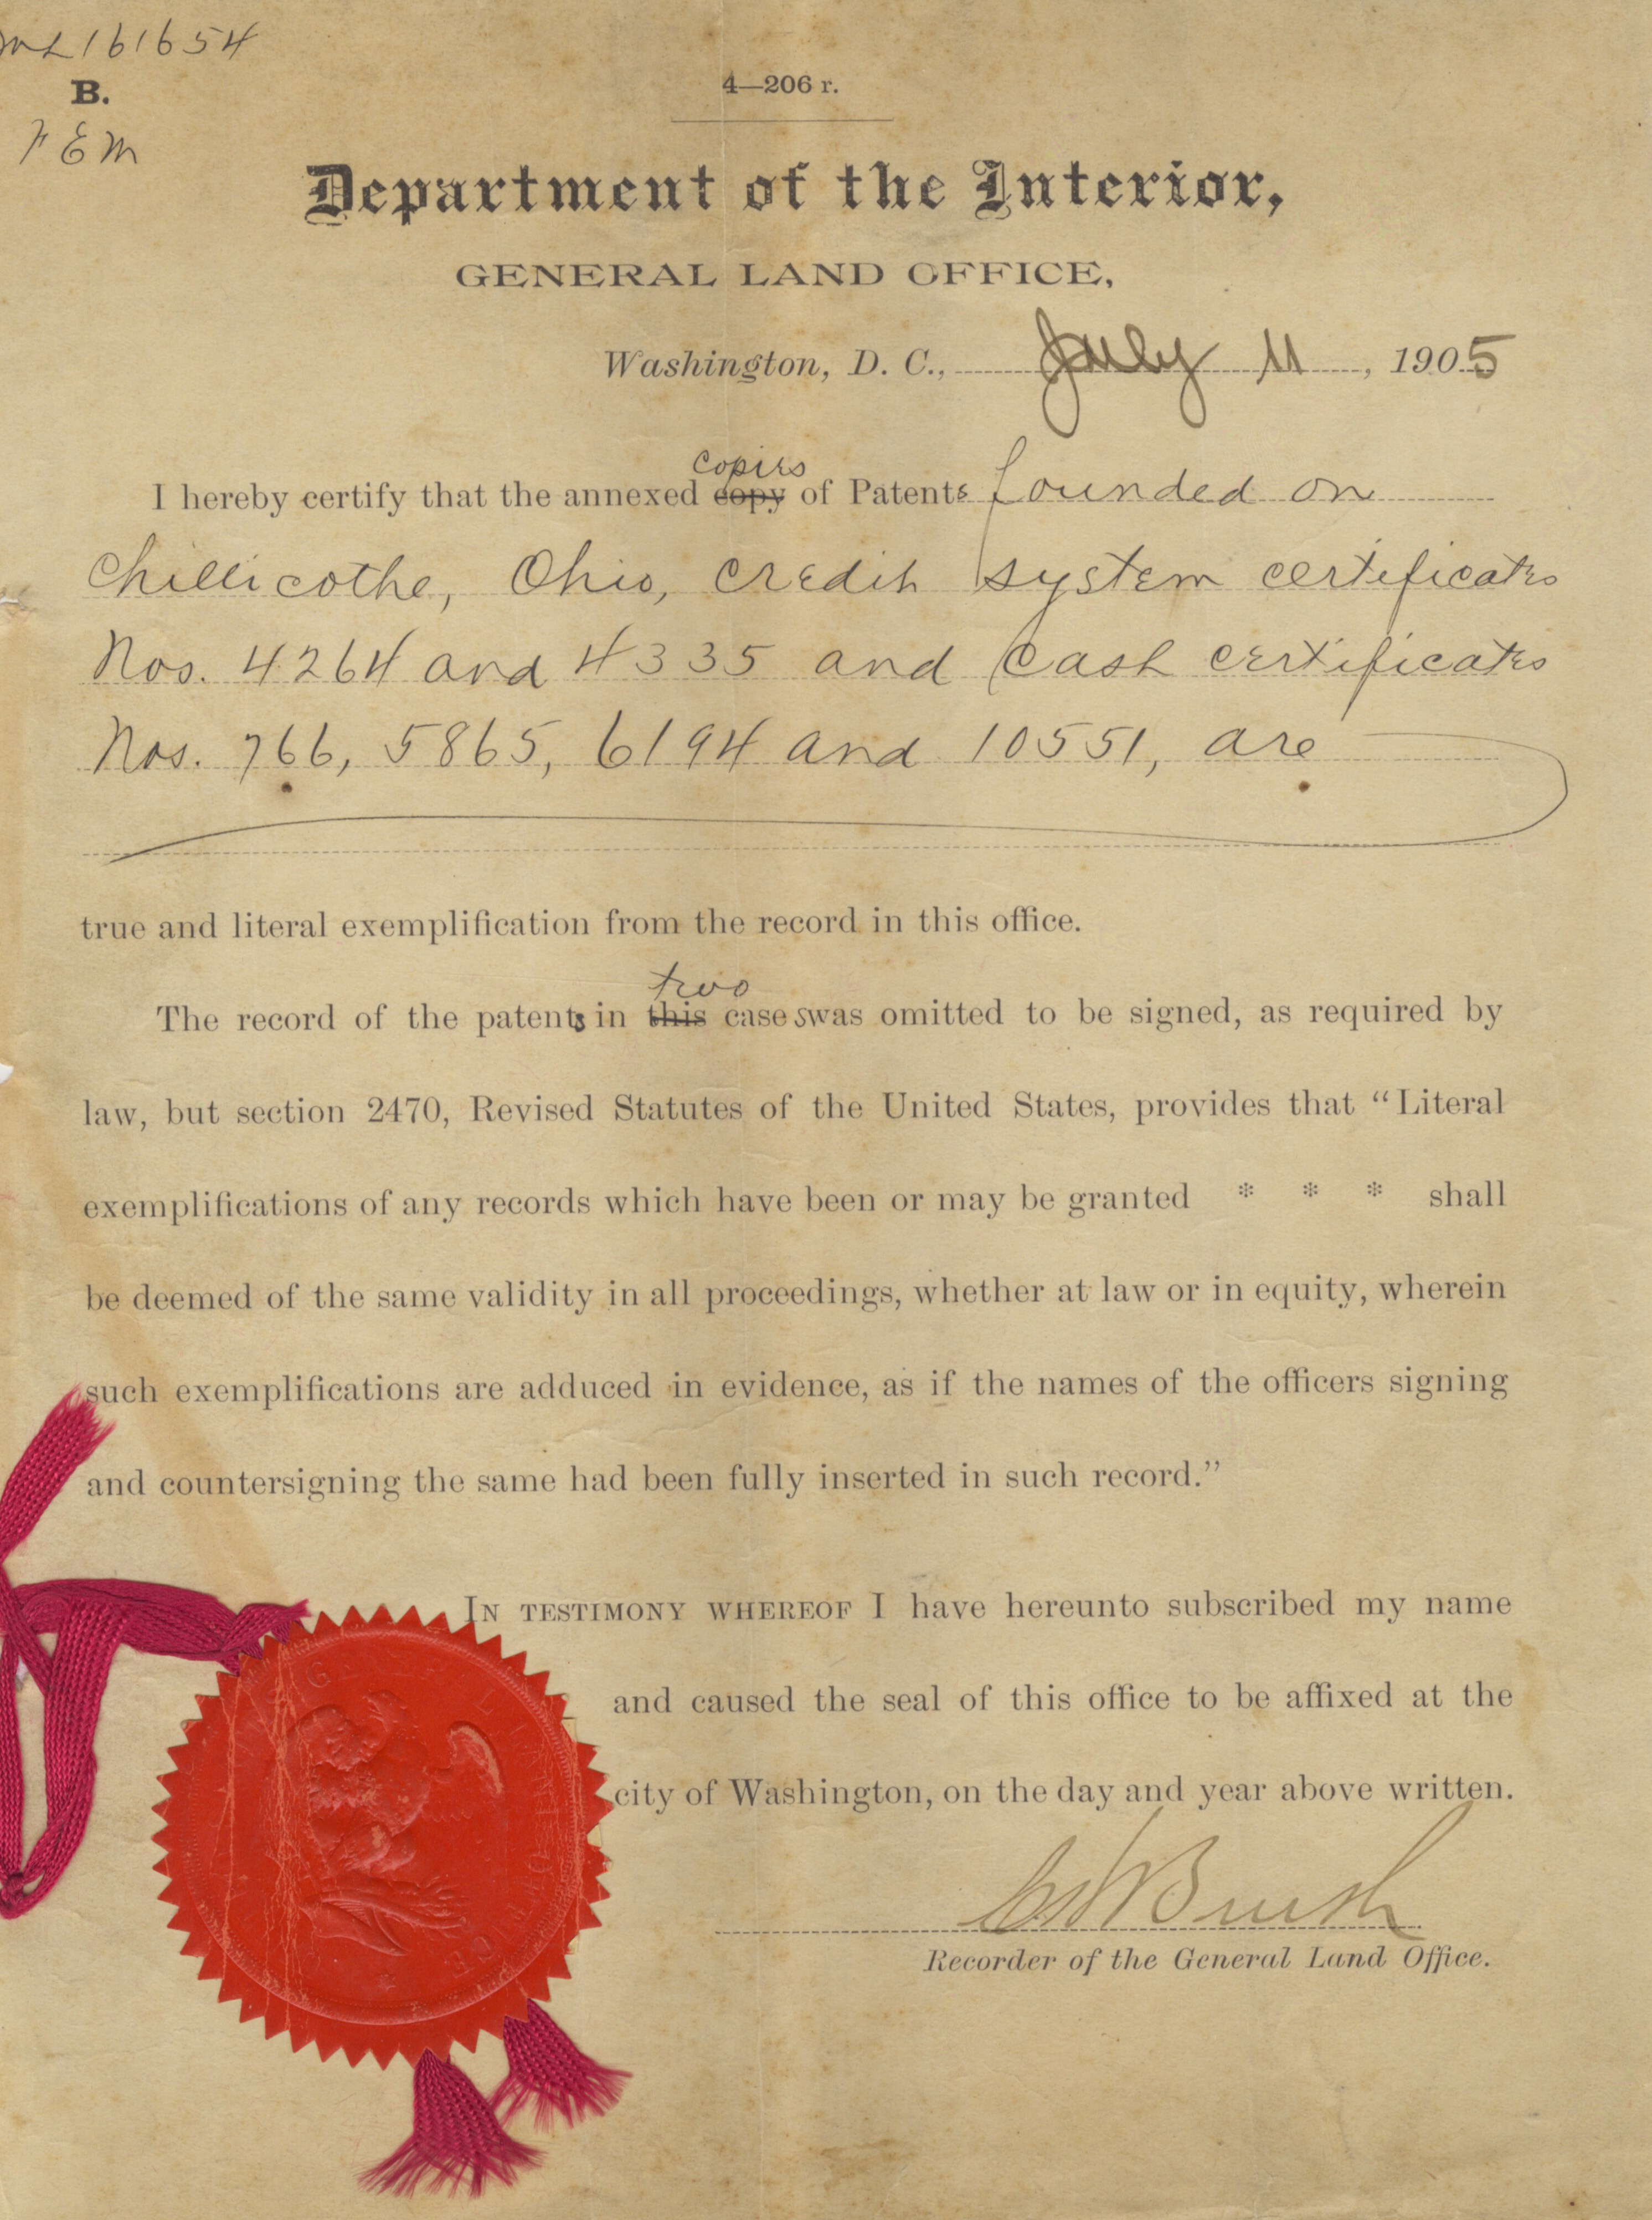 161654
B.
4—206 r.
F E M
Department of the Interior,
GENERAL LAND OFFICE,
Washington, D. C., July 11, 1905
copies
I hereby certify that the annexed copy of Patents founded on
Chillicothe, Ohio, credit system certificates
Nos. 4264 and 4335 and Cash certificates
Nos. 766, 5865, 6194 and 10551, are
true and literal exemplification from the record in this office.
two
The record of the patents in this cases was omitted to be signed, as required by
law, but section 2470, Revised Statutes of the United States, provides that “Literal
exemplifications of any records which have been or may be granted * * * shall
be deemed of the same validity in all proceedings, whether at law or in equity, wherein
such exemplifications are adduced in evidence, as if the names of the officers signing
and countersigning the same had been fully inserted in such record.”
IN TESTIMONY WHEREOF I have hereunto subscribed my name
and caused the seal of this office to be affixed at the
city of Washington, on the day and year above written.
Brush
Recorder of the General Land Office.